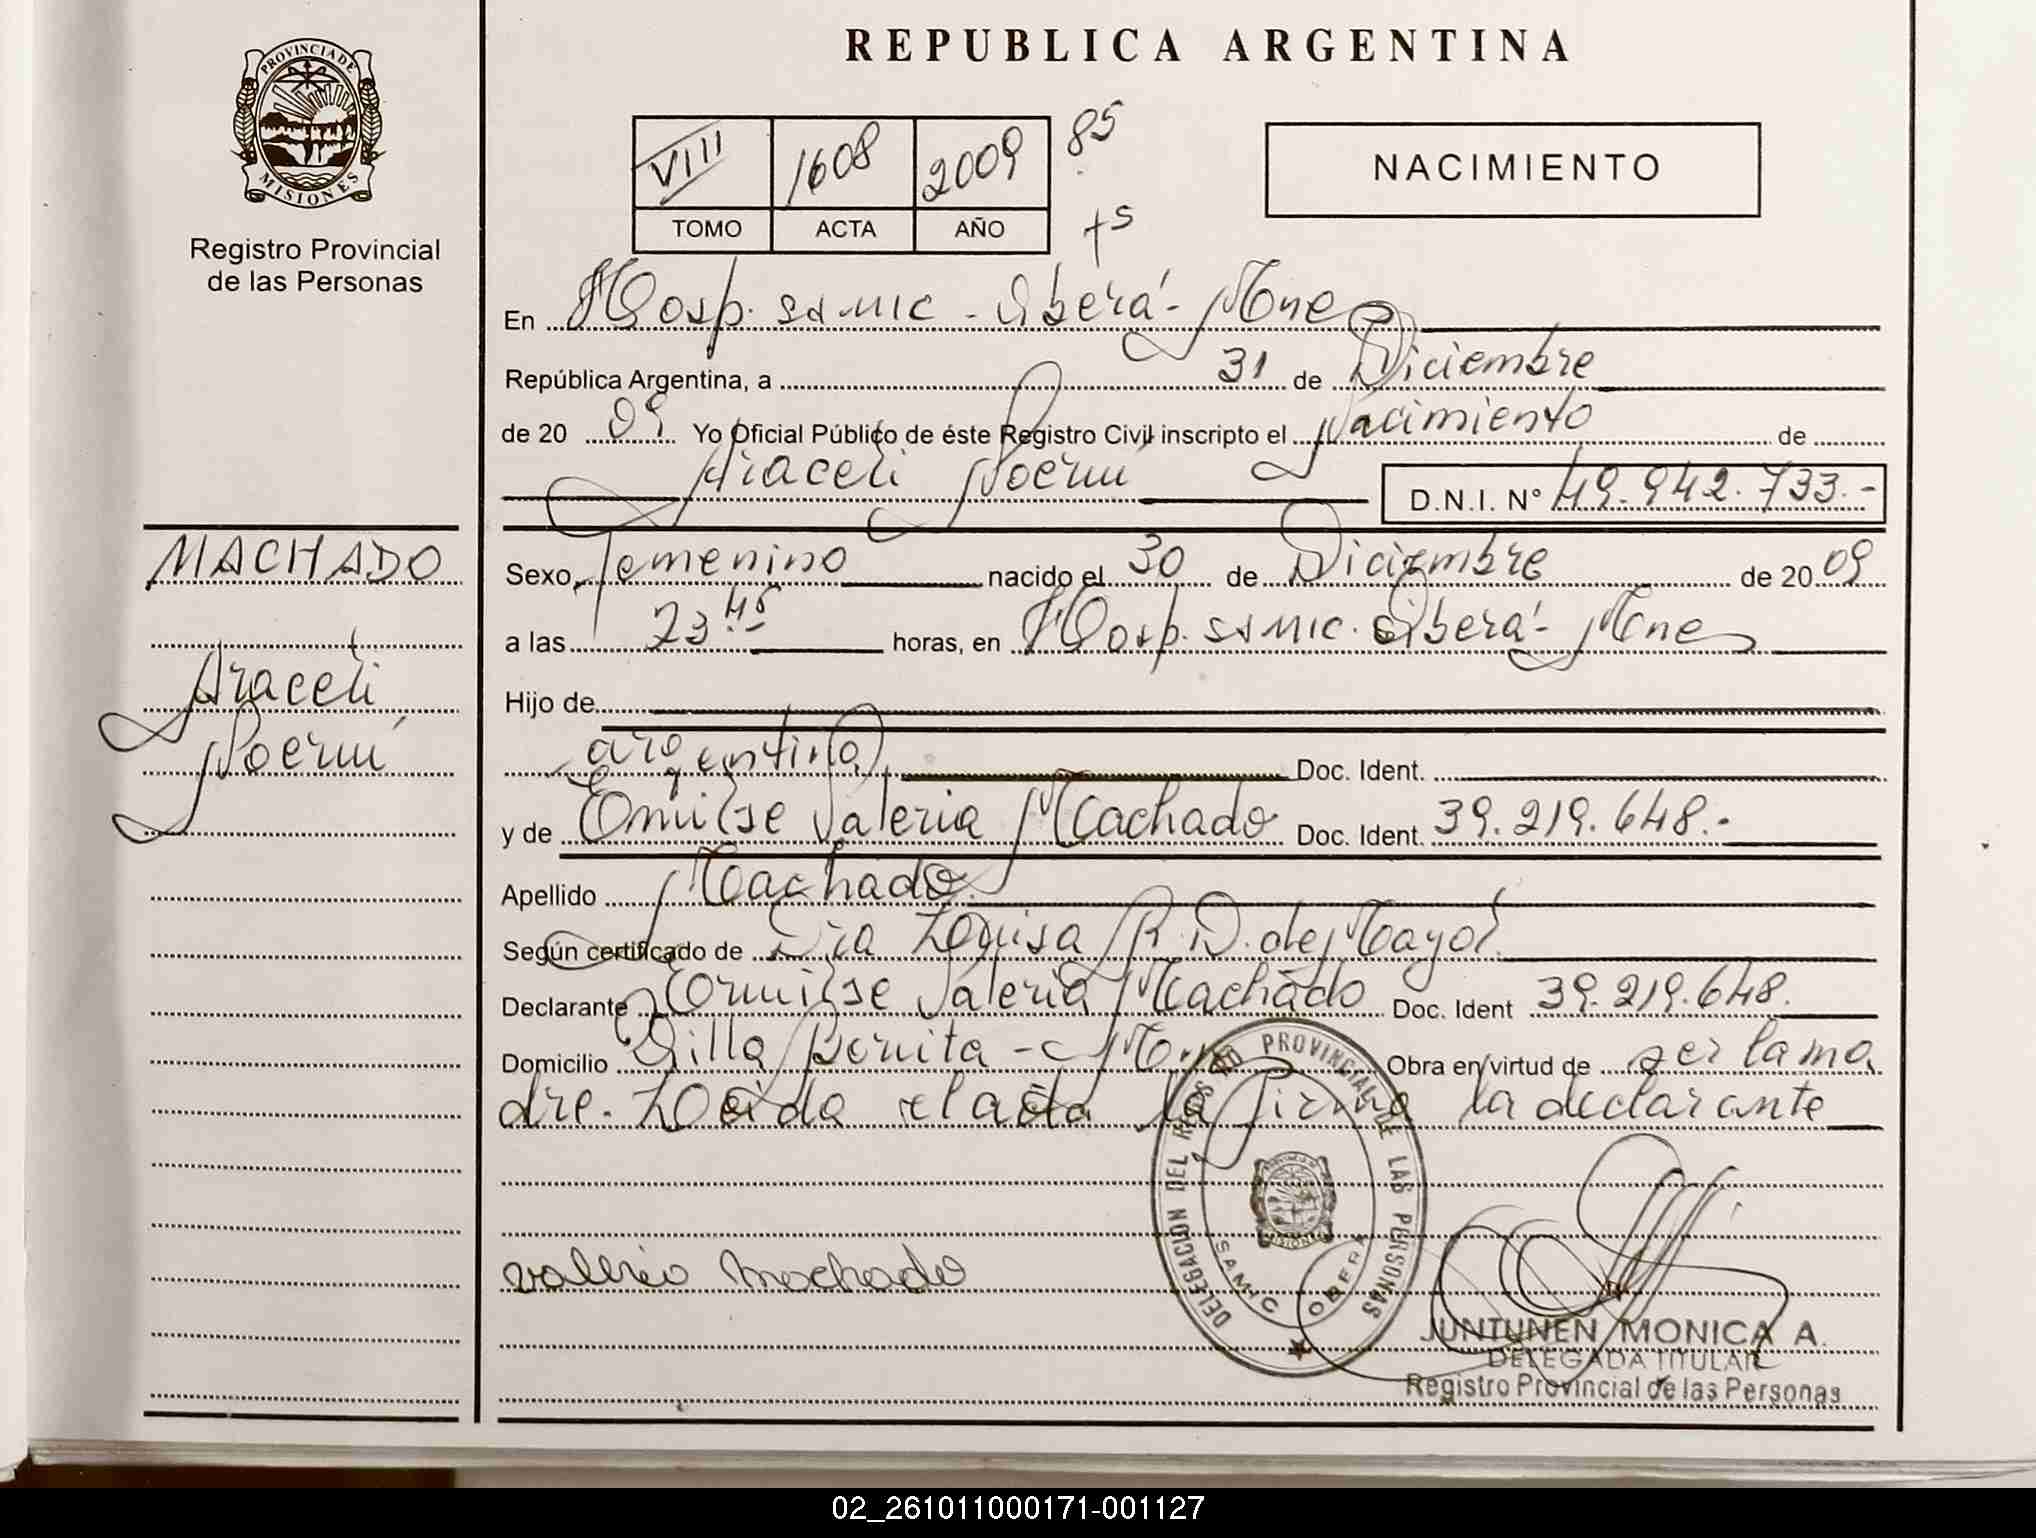 REPUBLICA ARGENTINA
PROVINCIA DE
MISIONES
Registro Provincial
de las Personas
VIII 1608 2009 85
TOMO ACTA AÑO
NACIMIENTO
En Hosp. SAMIC - Oberá - Mnes
República Argentina, a 31 de Diciembre
de 20 09 Yo Oficial Público de éste Registro Civil inscripto el Nacimiento de
Araceli Noemí D.N.I. N° 49.942.733.-
MACHADO
Araceli
Noemí
Sexo Femenino nacido el 30 de Diciembre de 20 09
a las 23 45 horas, en Hosp. SAMIC. Oberá - Mnes
Hijo de
argentina Doc. Ident.
y de Emilse Valeria Machado Doc. Ident. 39.219.648.-
Apellido Machado.
Según certificado de Dra Louisa R. D. de Mayol.
Declarante Emilse Valeria Machado Doc. Ident 39.219.648.
Domicilio Villa Bonita - Mnes Obra en virtud de ser la ma
dre. Leída el acta la firma la declarante
DELEGACION DEL REGISTRO PROVINCIAL DE LAS PERSONAS
MISIONES
SAMIC OBERA
valeria machado
JUNTUNEN MONICA A.
DELEGADA TITULAR
Registro Provincial de las Personas
02_261011000171-001127